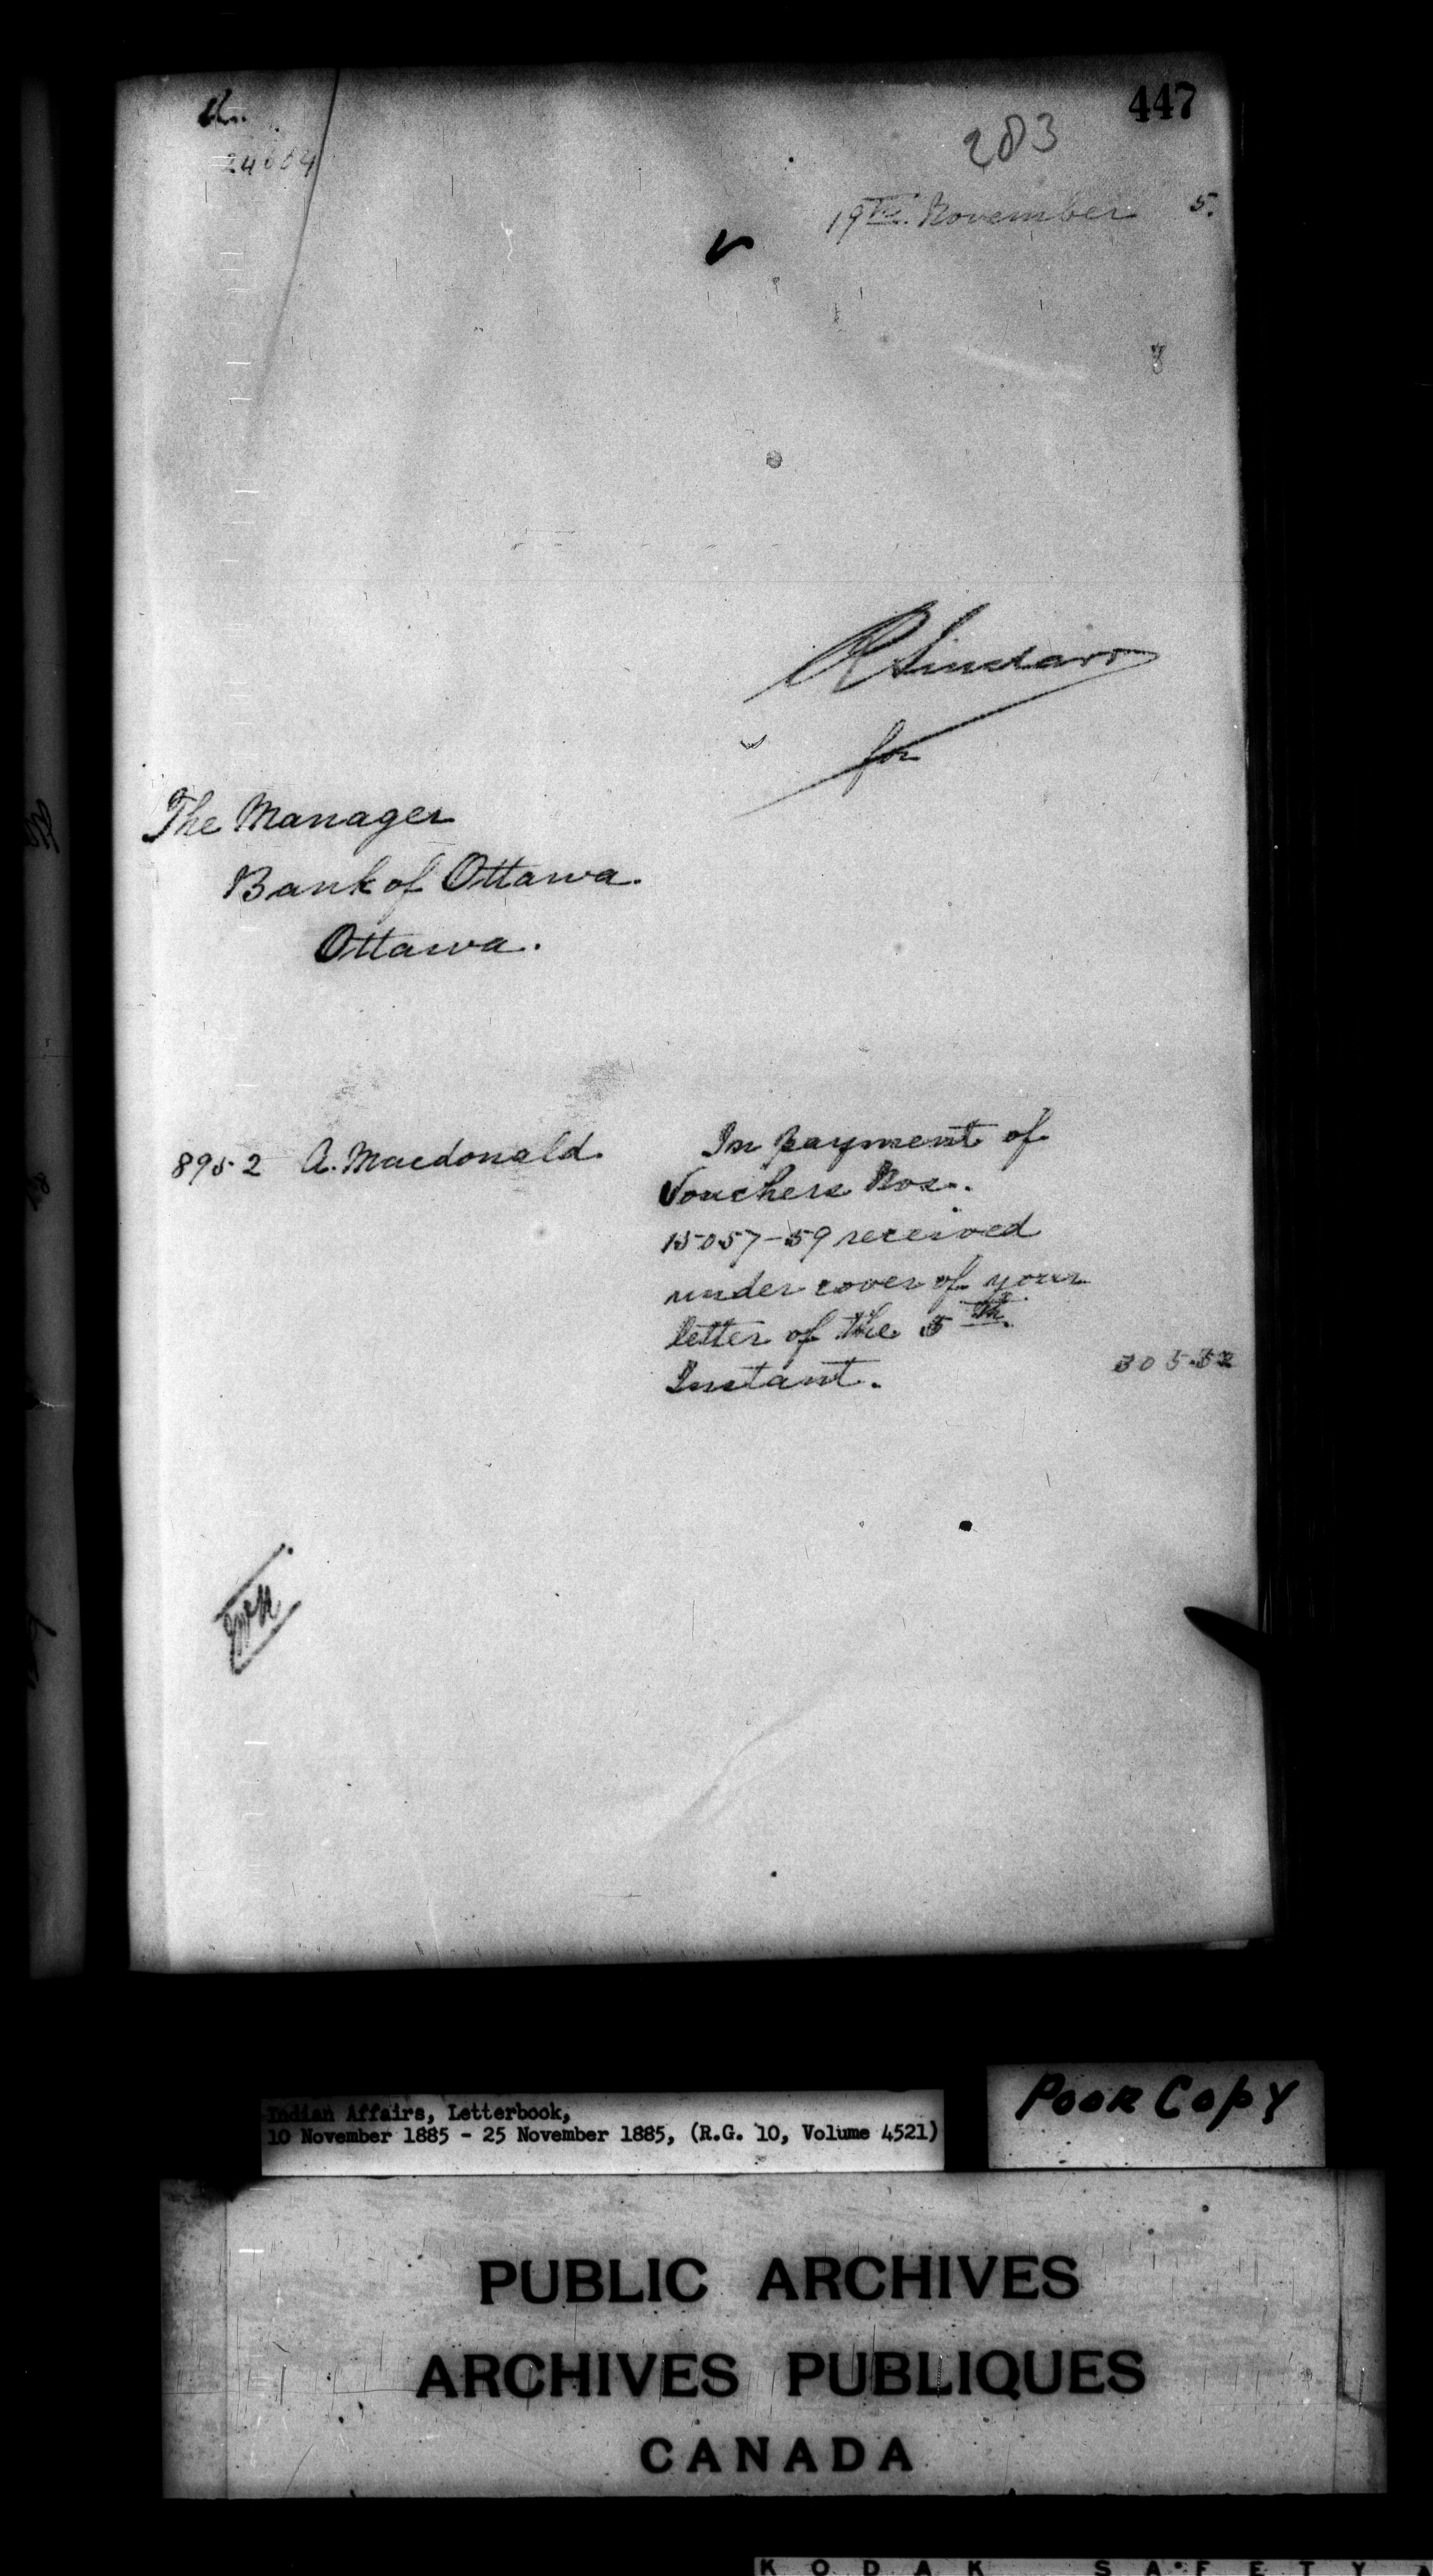 447
283
19th November 5.
R Sinclair
for
The Manager
Bank of Ottawa.
Ottawa.
8952 A. Macdonald.
In payment of
Vouchers Nos.
15057-59 received
under cover of your
letter of the 5th
Instant.
305.32
Indian Affairs, Letterbook,
10 November 1885 - 25 November 1885, (R.G. 10, Volume 4521)
Poor Copy
PUBLIC ARCHIVES
ARCHIVES PUBLIQUES
CANADA
KODAK SAFETY